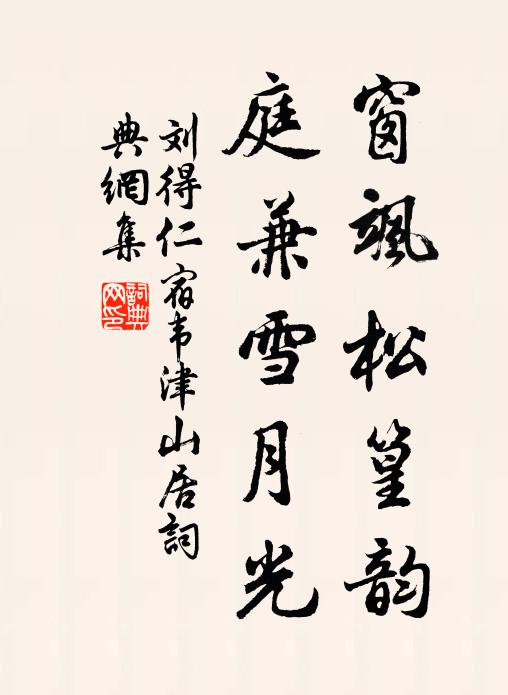 窗飒松篁韵
庭兼雪月光
刘得仁宿韦津山居词
典網集
詞典
网印